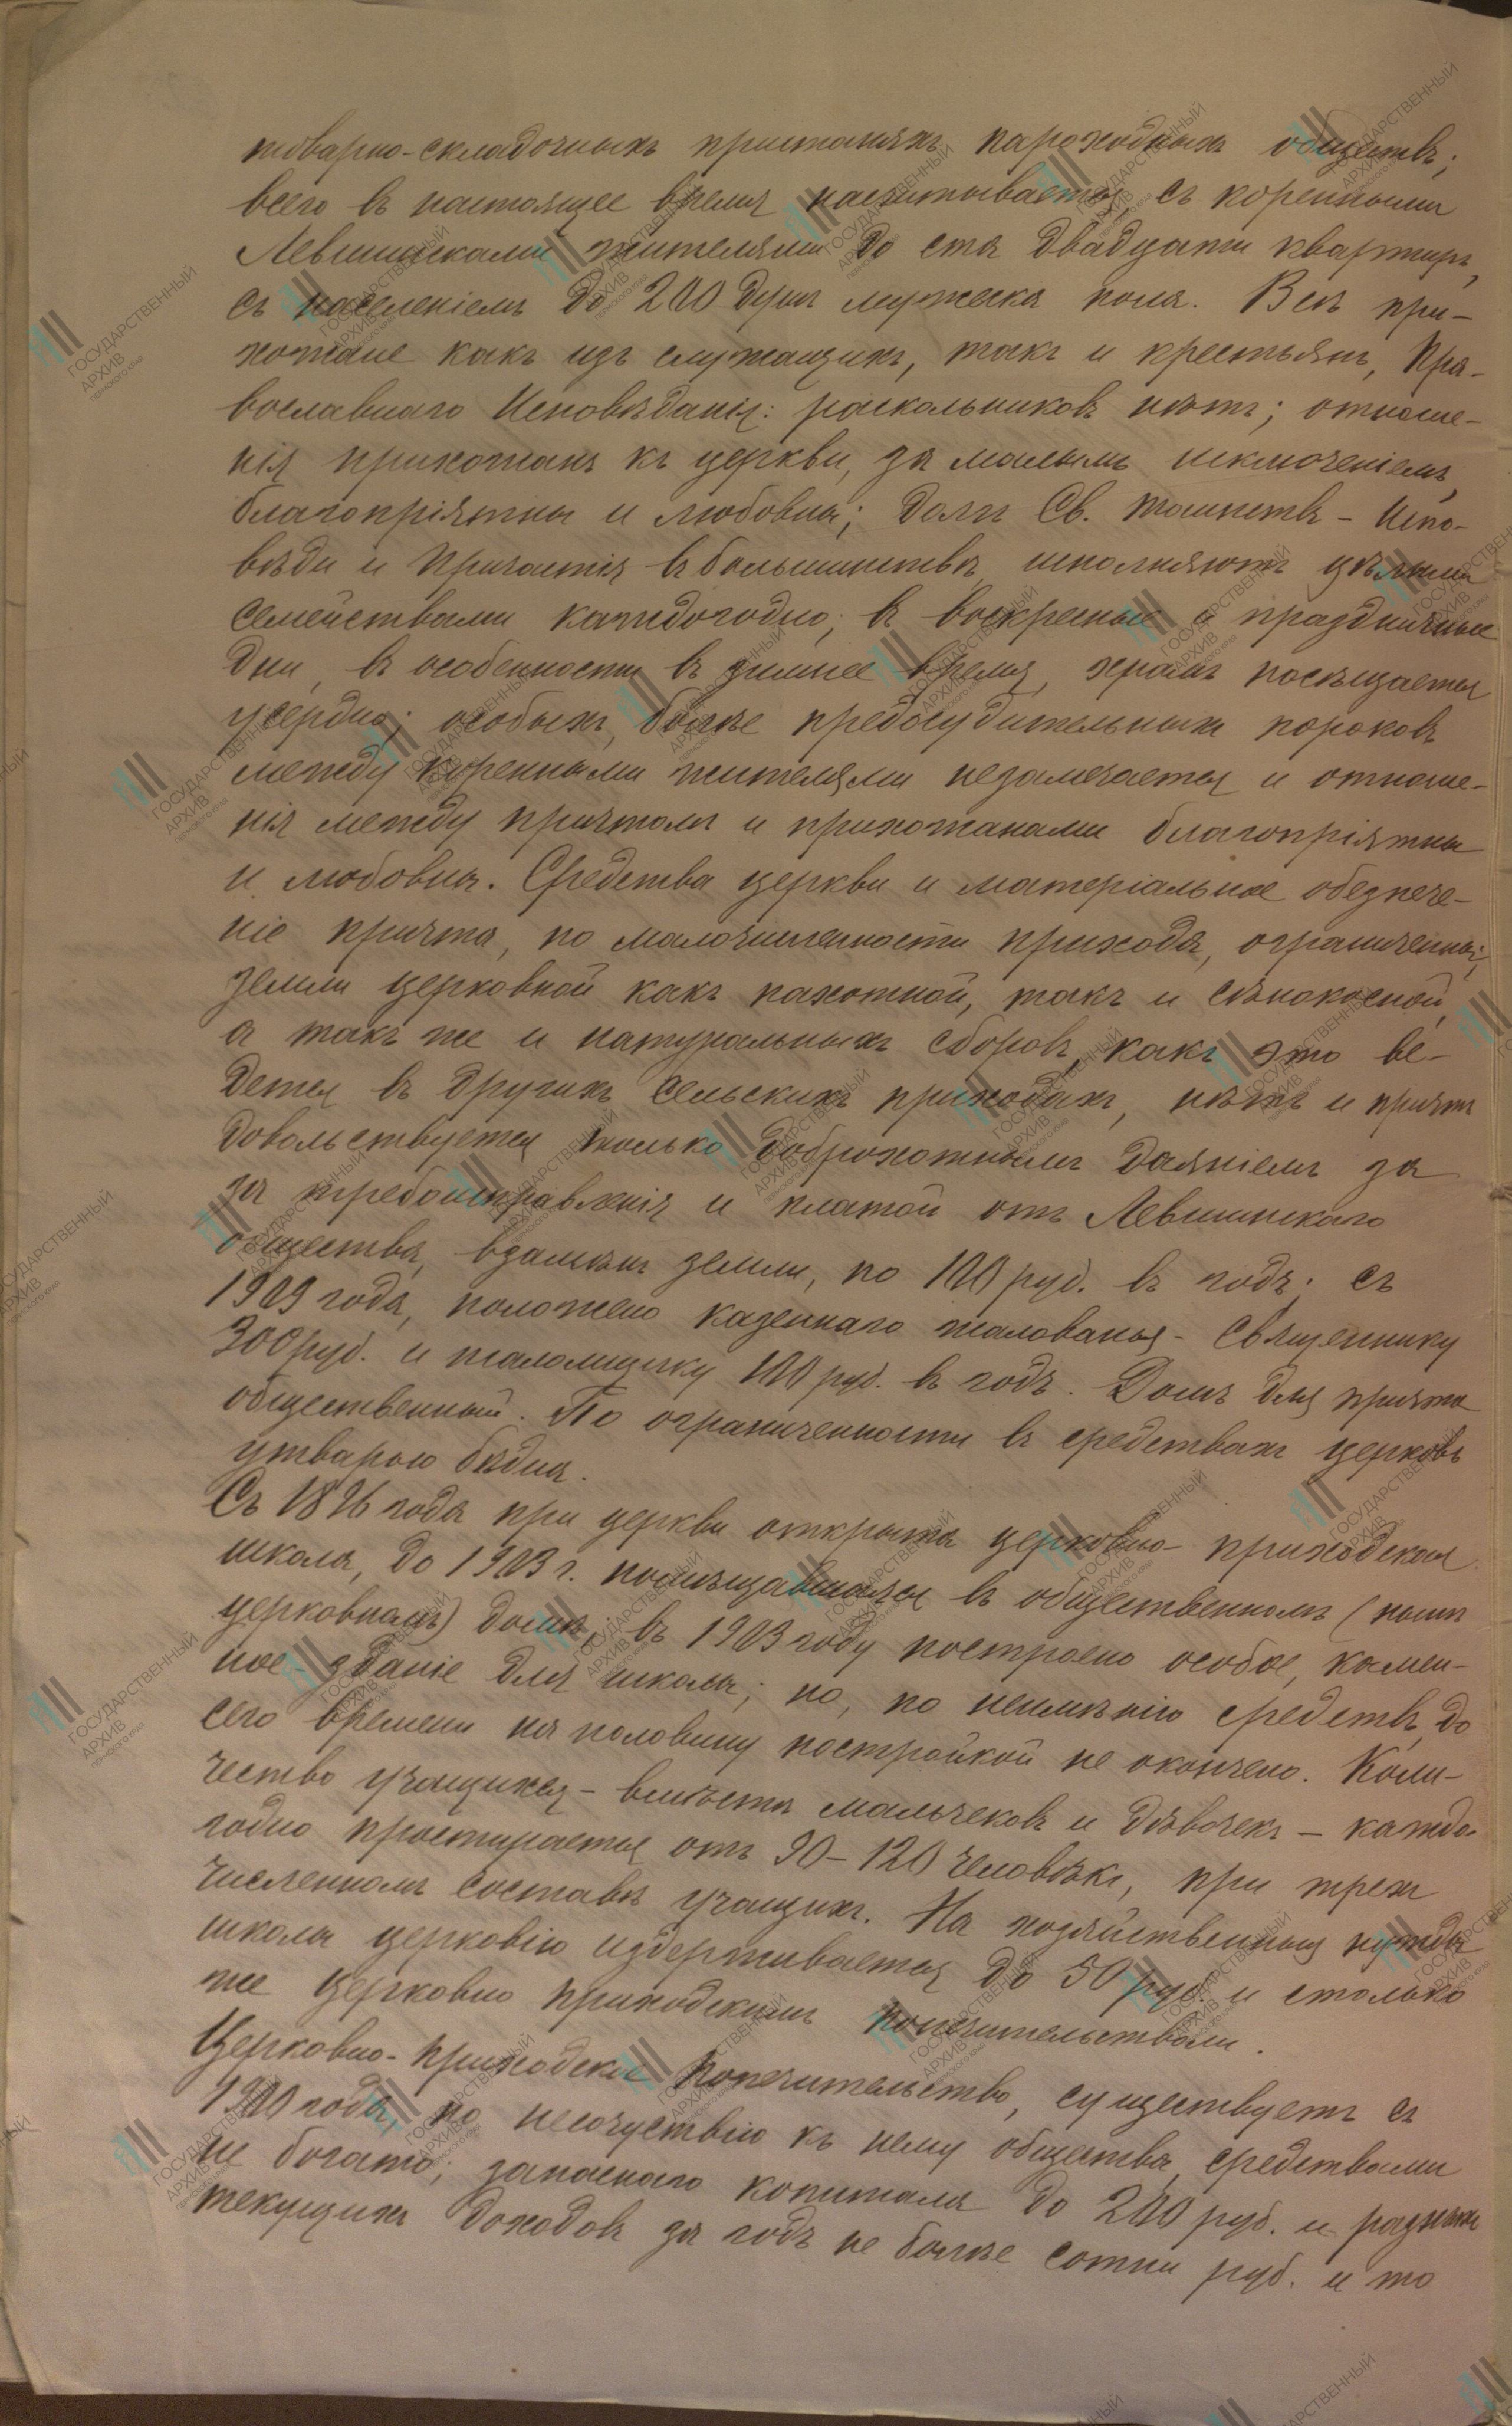 товарно-складочныхъ пристаняхъ пароходныхъ обществъ;
всего въ настоящее время насчитывается съ коренными
Левшинскими жителями до ста двадцати квартиръ,
съ населеніемъ до 200 душъ мужеска пола. Всѣ при-
хожане какъ изъ служащихъ, такъ и крестьянъ, Пра-
вославнаго Исповѣданія: раскольниковъ нѣтъ; отноше-
нія прихожанъ къ церкви, за малымъ исключеніемъ,
благопріятны и любовны; долгъ Св. Таинствъ - Испо-
вѣди и Причастія въ большинствѣ исполняютъ цѣлыми
семействами каждогодно; въ воскресные и праздничные
дни, въ особенности въ зимнее время, храмъ посѣщается
усердно; особыхъ, болѣе предосудительныхъ пороковъ
между коренными жителями незамѣчается и отноше-
нія между причтомъ и прихожанами благопріятны
и любовны. Средства церкви и матеріальное обезпече-
ніе причта, по малочисленности прихода, ограниченны;
земли церковной какъ пахотной, такъ и сѣнокосной,
а такъ же и натуральныхъ сборовъ, какъ это ве-
дется въ другихъ сельскихъ приходахъ, нѣтъ и причтъ
довольствуется только доброхотнымъ даяніемъ за
за требоисправленія и платой отъ Левшинскаго
общества, взамѣнъ земли, по 100 руб. въ годъ; съ
1909 года, положено казеннаго жалованья - священнику
300 руб. и псаломщику 100 руб. въ годъ. Домъ для причта
общественный. По ограниченности въ средствахъ церковь
утварью бѣдна.
Съ 1896 года при церкви открыта церковно-приходская
школа, до 1903 г. помѣщавшаяся въ общественномъ (нынѣ
церковномъ) домѣ; въ 1903 году построено особое, камен-
ное зданіе для школы; но, по неимѣнію средствъ, до
сего времени на половину постройкой не окончено. Коли-
чество учащихся - вмѣстѣ мальчековъ и дѣвочекъ - каждо-
годно простирается отъ 90-120 человѣкъ, при трехъ
численномъ составѣ учащихъ. На хозяйственныя нужды
школы церковію издерживается до 50 руб. и столько
же церковно приходскимъ попечительствомъ.
Церковно-приходское попечительство, существуетъ съ
1900 года, по несочуствію къ нему общества, средствами
не богато; запаснаго копитала до 200 руб. и разныхъ
текущихъ доходовъ за годъ не болѣе сотни руб. и то
ГОСУДАРСТВЕННЫЙ
АРХИВ
пермского края